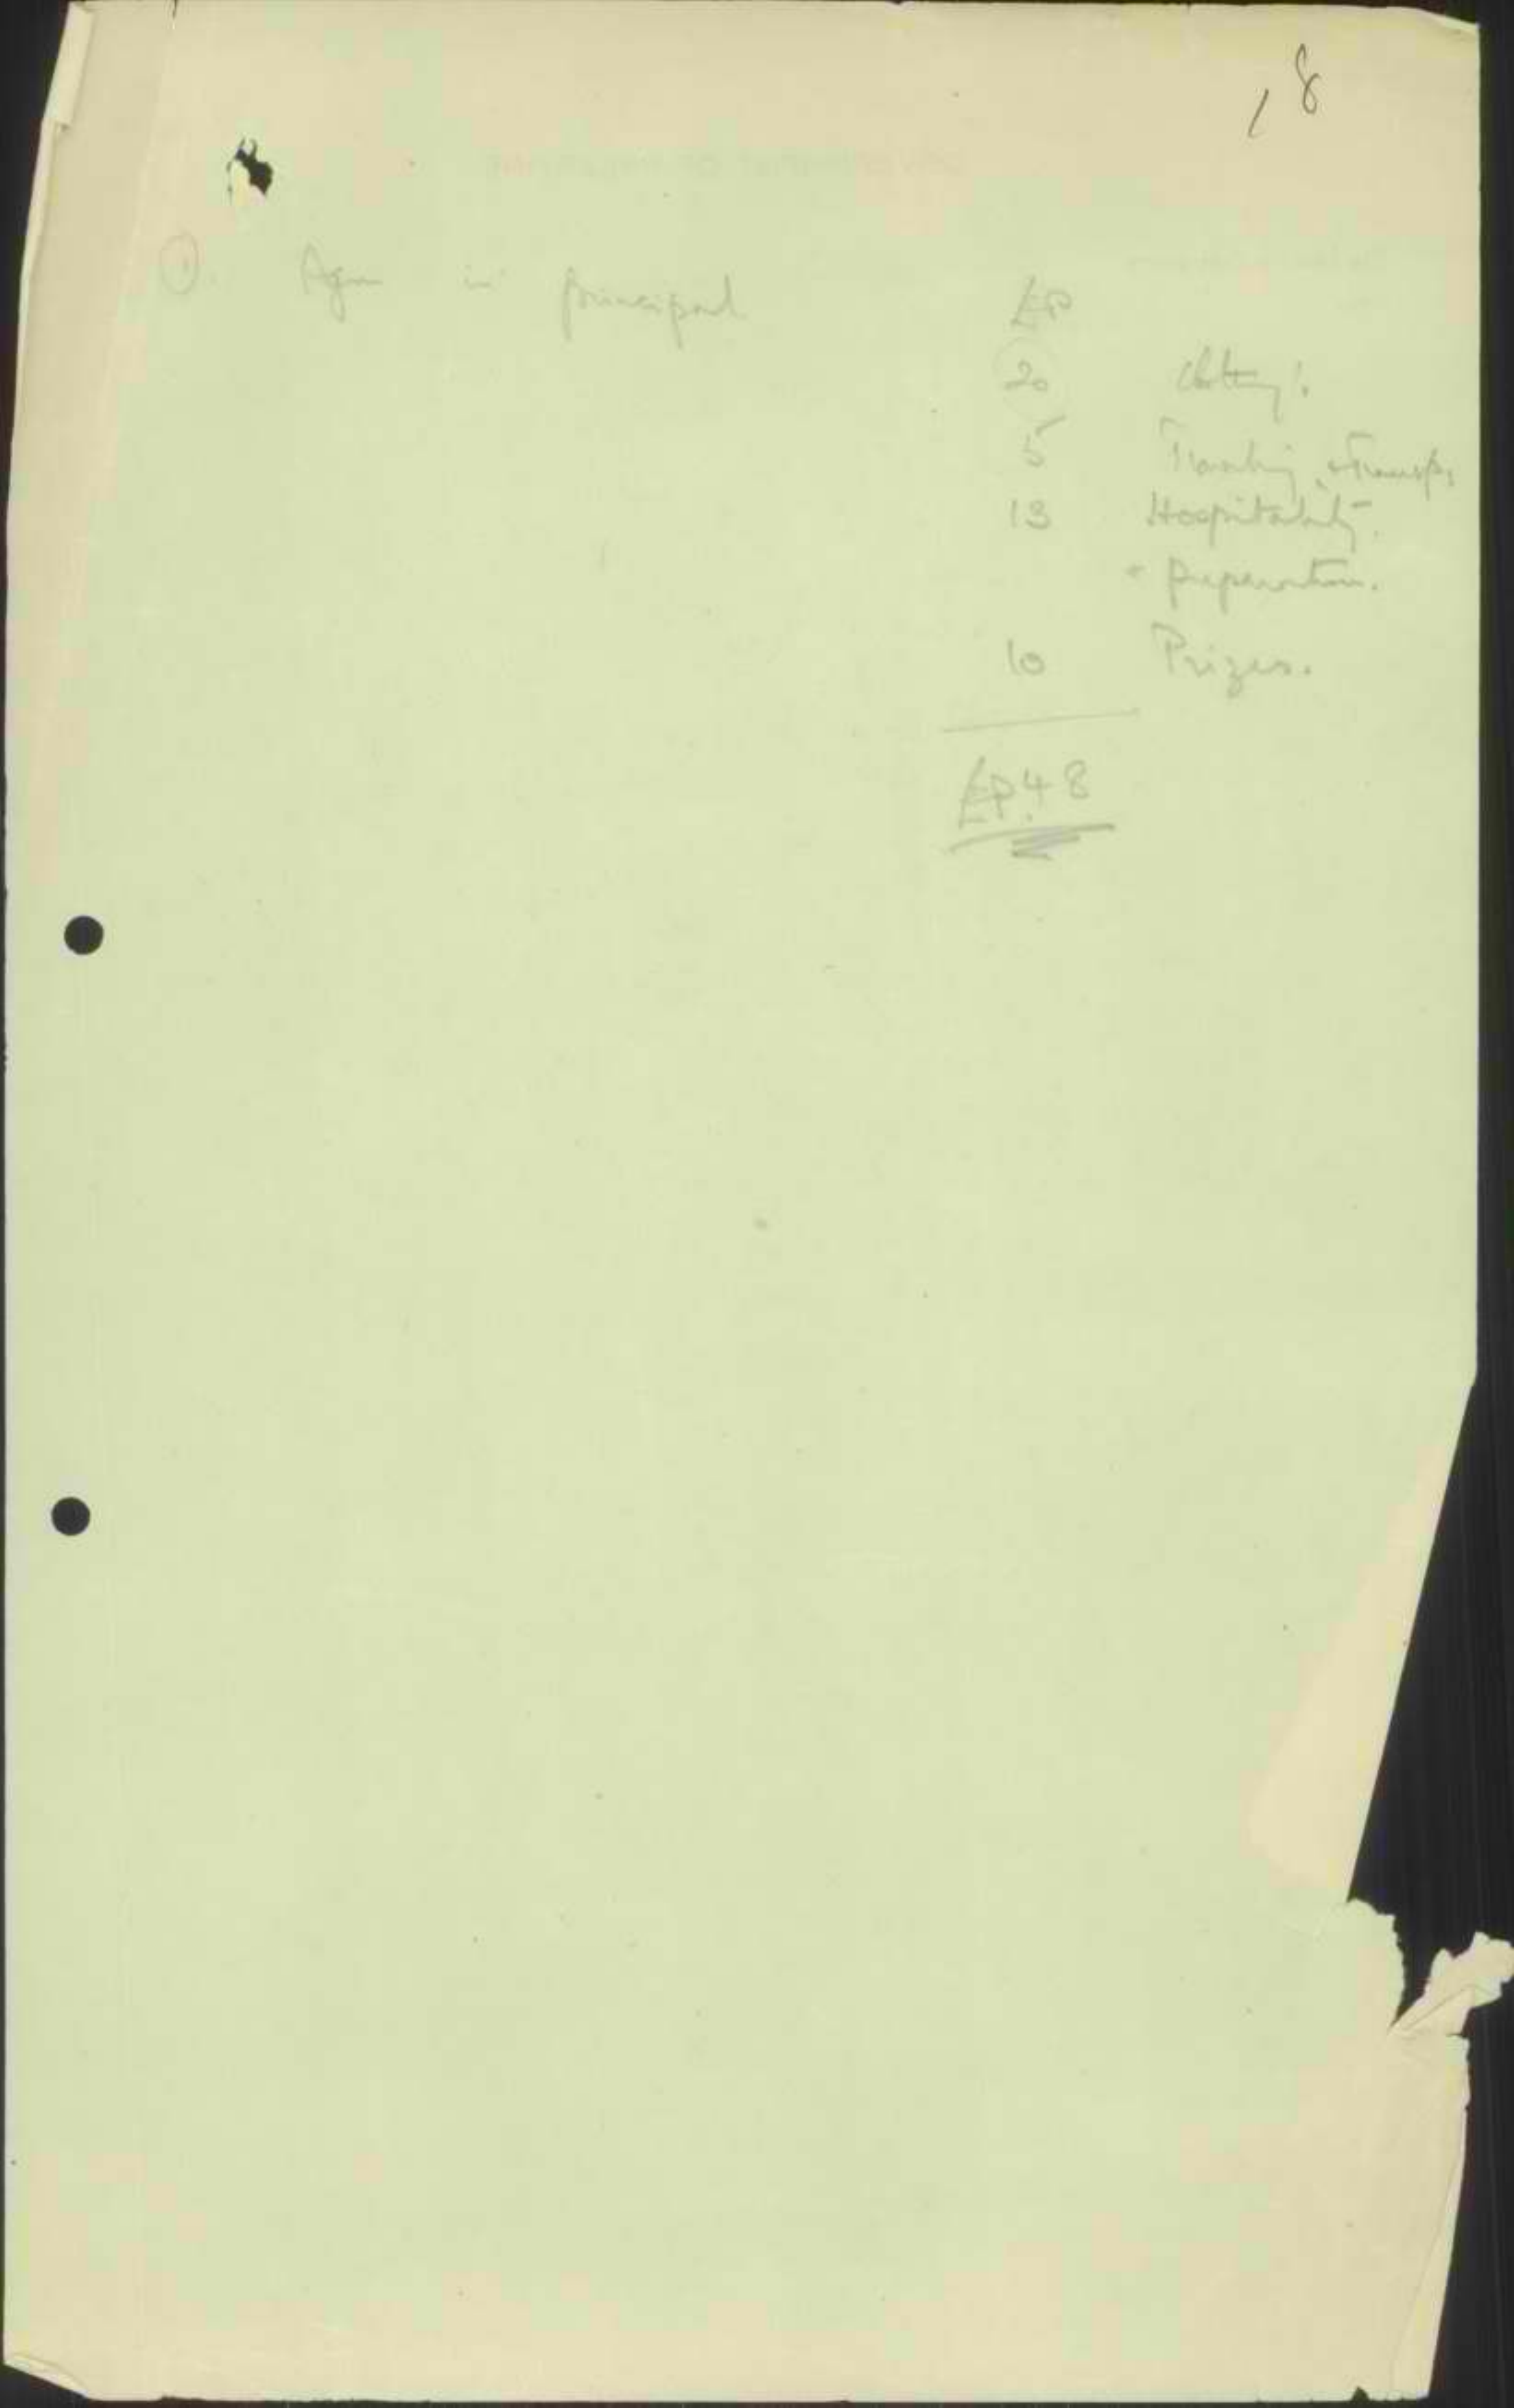 18
① Agree in principal
£P
20 Clothing.
5 Travelling & Transp.
13 Hospitality
+ preparation.
10 Prizes.
£P.48